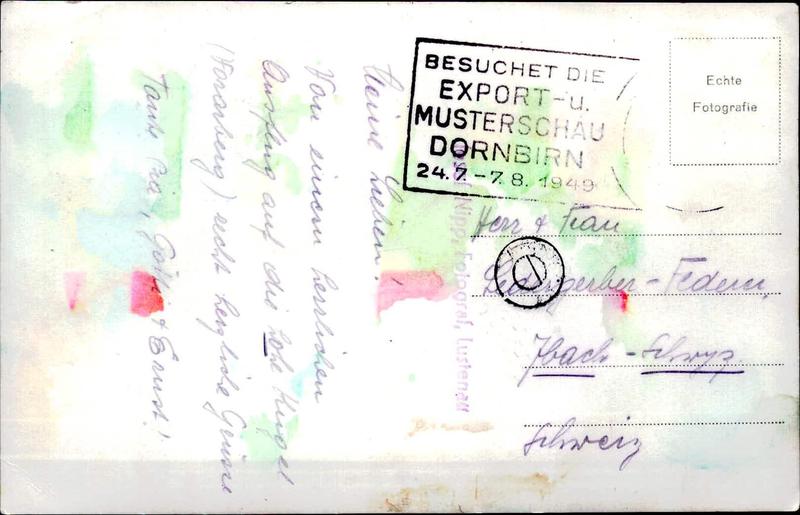 Meine Lieben!
Von einem herrlichen
Ausflug auf die hohe Kugel
(Vorarberg) recht herzliche Grüsse
Tante
Götti & Ernst!
BESUCHET DIE
EXPORT-u.
MUSTERSCHAU
DORNBIRN
24.7.-7.8.1949
Echte
Fotografie
Nipp, Fotograf, Lustenau
Herr & Frau
Federer,
Jbach - Schwyz
Schweiz